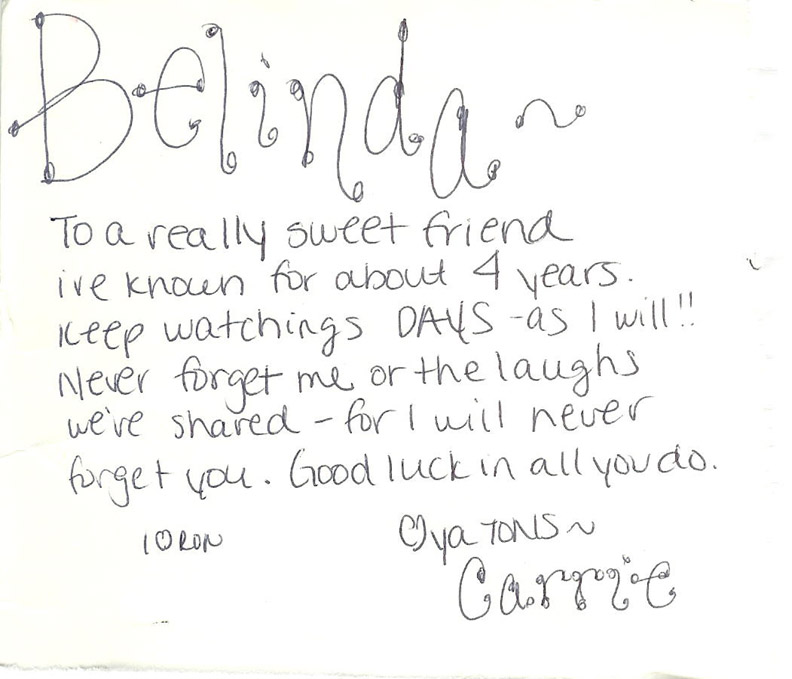 Belinda ~
To a really sweet friend
ive known for about 4 years.
Keep watchings DAYS - as I will!!
Never forget me or the laughs
we've shared - for I will never
forget you. Good luck in all you do.
I ♡ RON
♡ ya TONS ~
Carrie